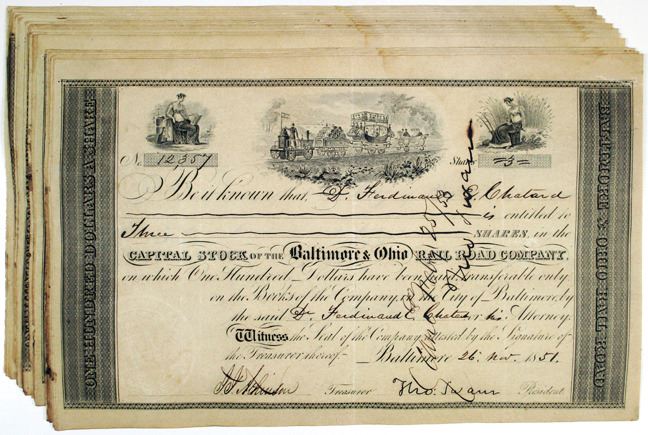 No. 12,357 Shares =3=
Be it known that, Dr. Ferdinand E. Chatard
is entitled to
Three SHARES, in the
CAPITAL STOCK OF THE Baltimore & Ohio RAIL ROAD COMPANY,
on which One Hundred Dollars have been paid, transferable only
on the Books of the Company in the City of Baltimore, by
the said Dr. Ferdinand E. Chatard, or his Attorney.
Witness the Seal of the Company, attested by the Signature of
the Treasurer thereof. Baltimore 26. Nov. 1851.
Treasurer Tho. Swann President
ONE HUNDRED DOLLARS A SHARE
BALTIMORE & OHIO RAIL ROAD
Tho Swann